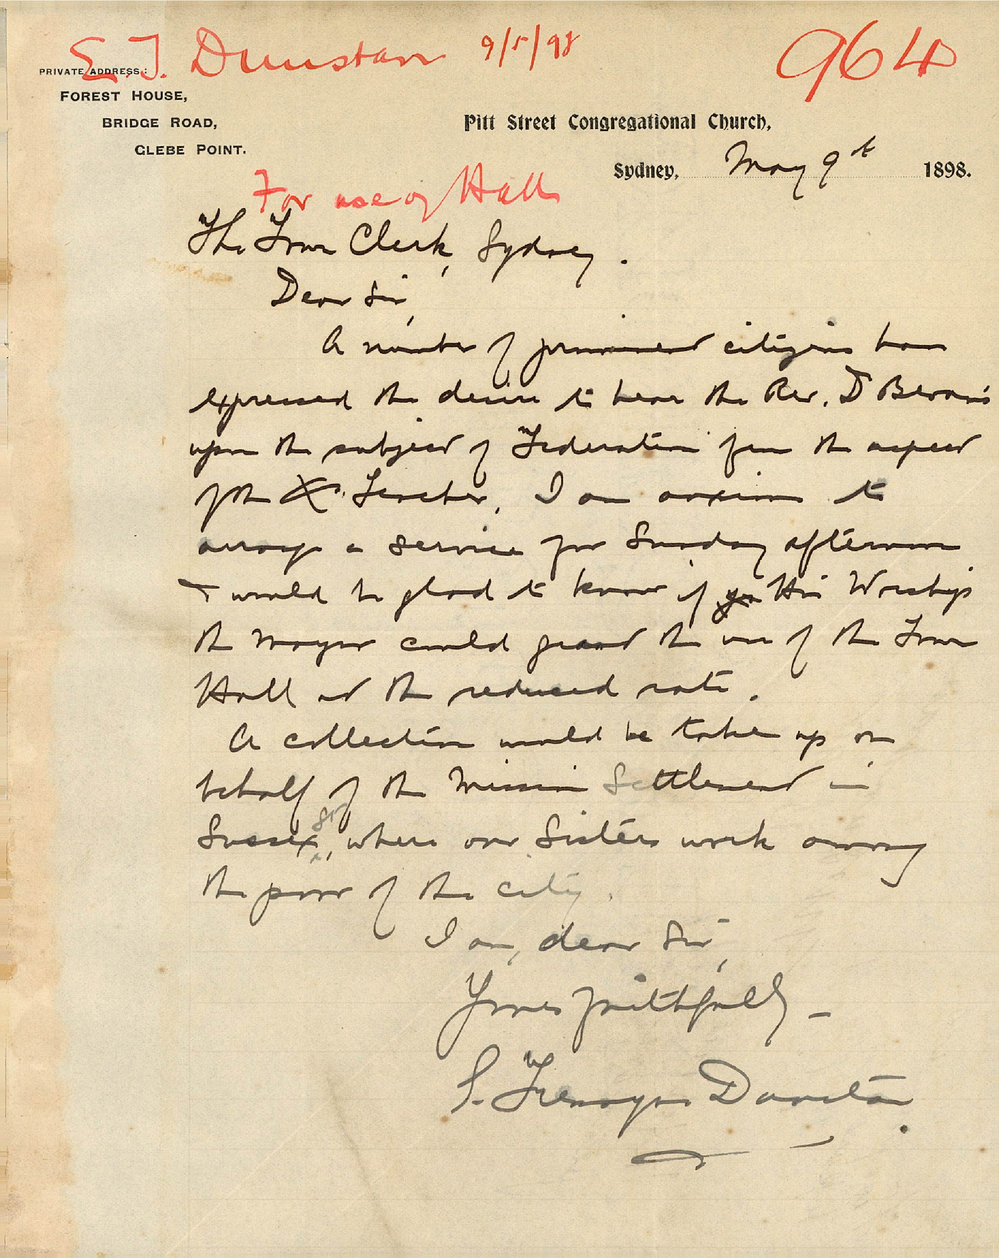 E. T. Dunstan 9/5/98
964
PRIVATE ADDRESS:
FOREST HOUSE,
BRIDGE ROAD,
GLEBE POINT.
Pitt Street Congregational Church,
Sydney, May 9th 1898.
For use of Hall
The Town Clerk, Sydney.
Dear Sir,
A number of prominent citizens have
expressed the desire to hear the Rev. Dr Bevan's
upon the subject of Federation from the aspect
of the Xn. Teacher. I am anxious to
arrange a service for Sunday afternoon
& would be glad to know if you His Worship
the Mayor could grant the use of the Town
Hall at the reduced rate.
A collection would be taken up on
behalf of the Mission Settlement in
Sussex St, where our Sisters work among
the poor of the city.
I am, dear Sir,
Yours faithfully -
Dunstan